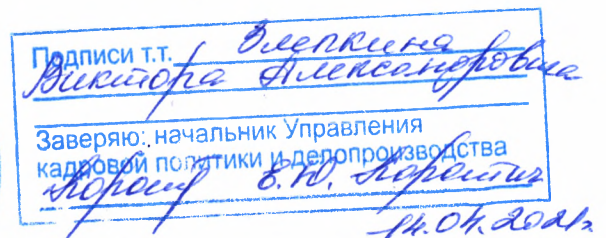 Подписи т.т. Злепкина
Виктора Александровича
Заверяю: начальник Управления
кадровой политики и делопроизводства
Е.Ю. Коротич
14.04.2021г.